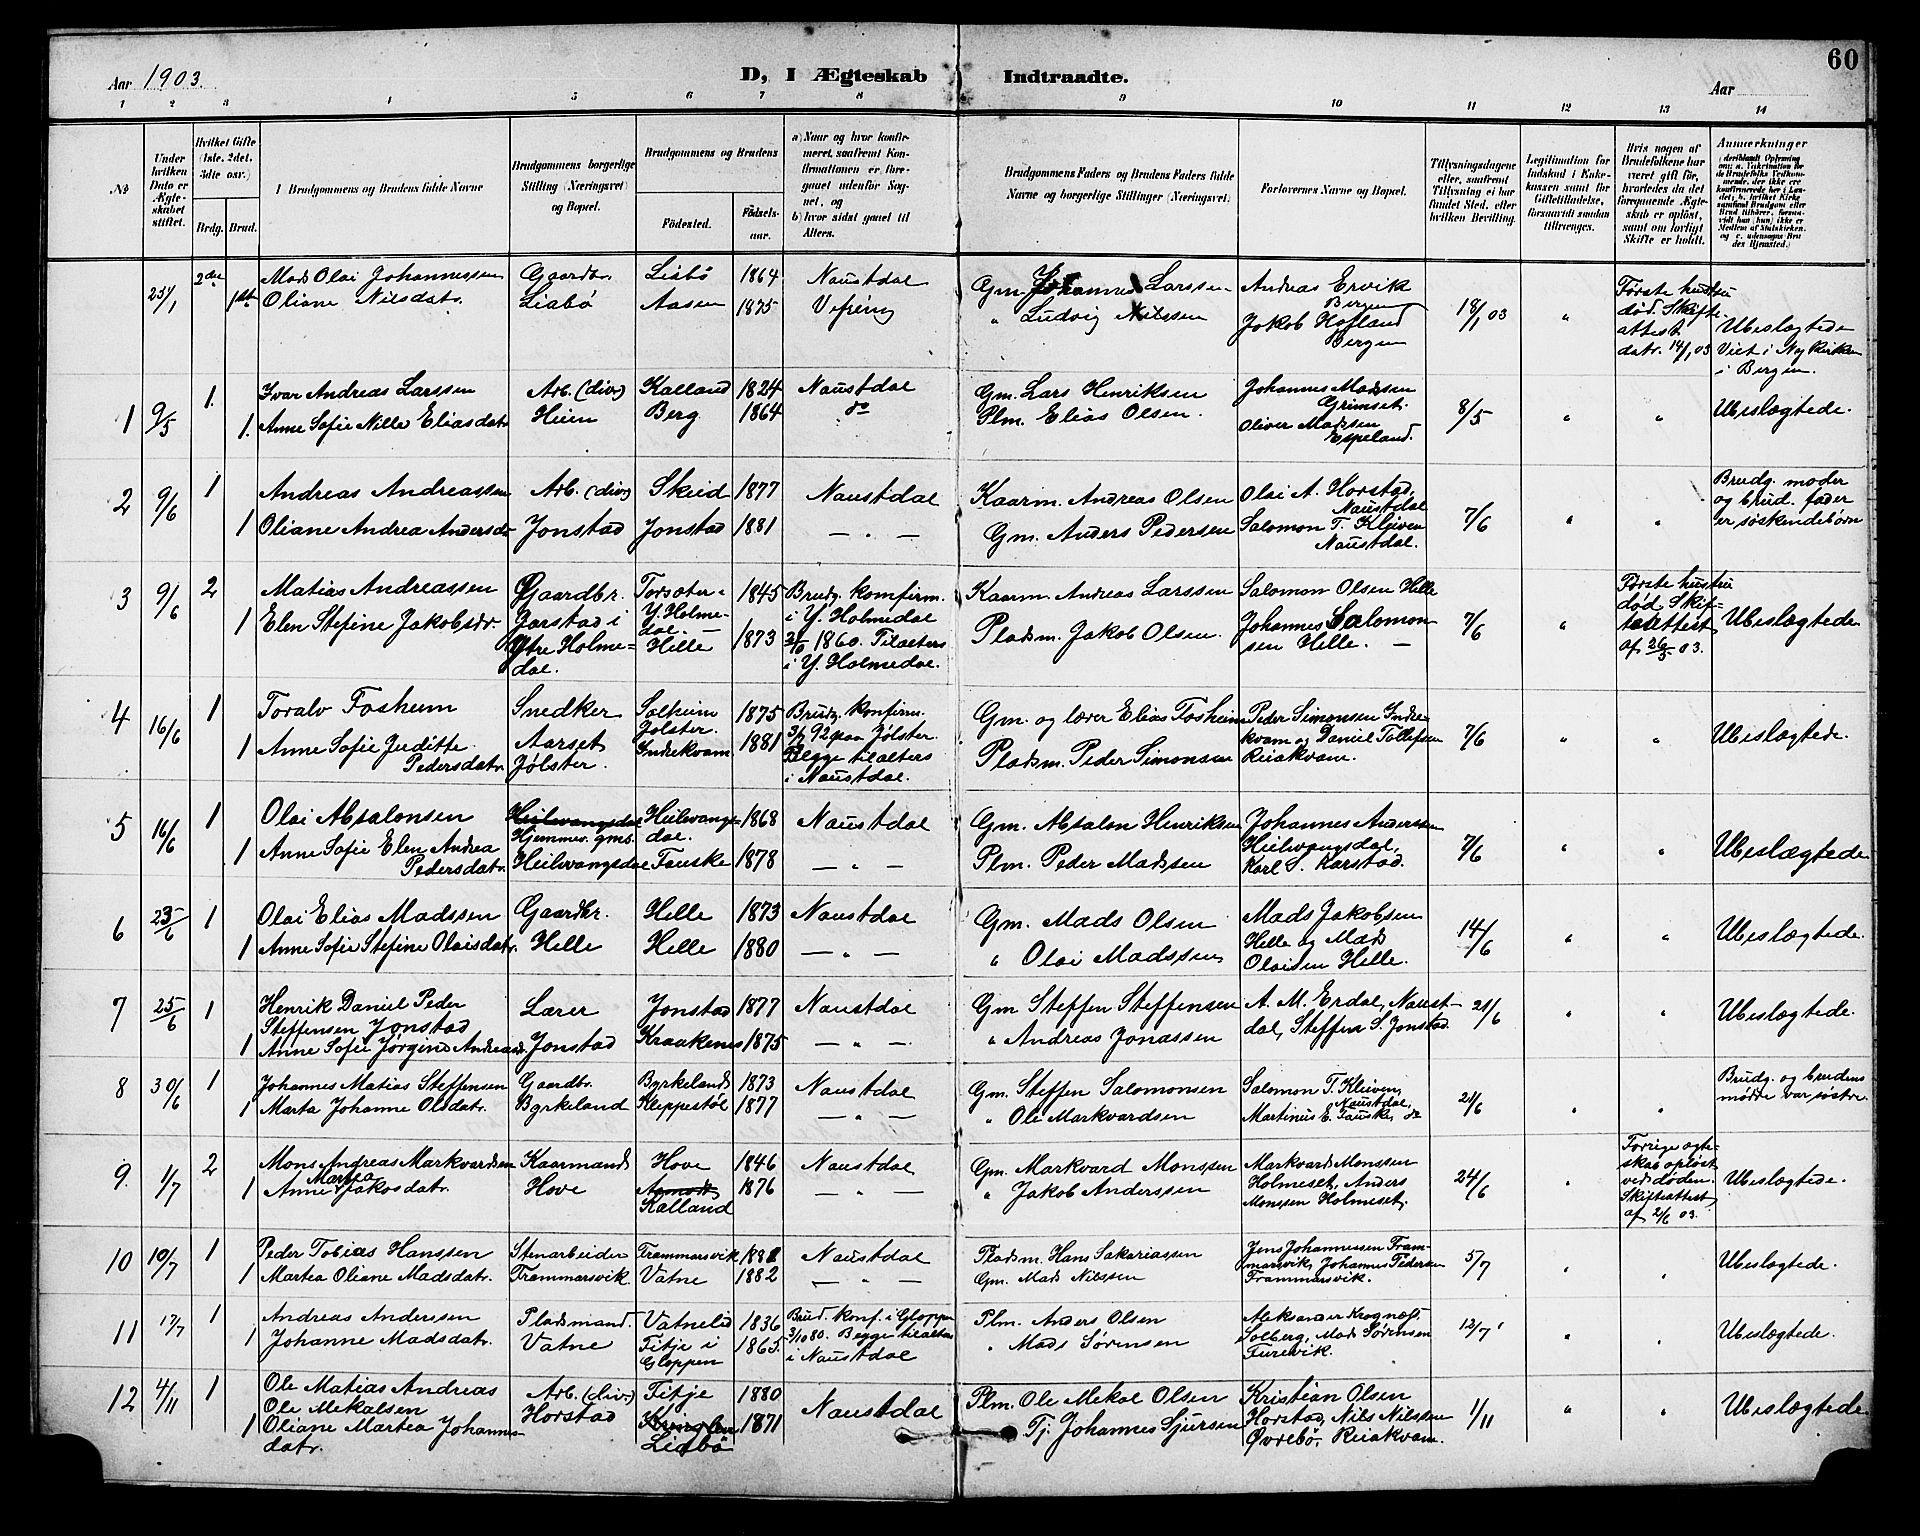 60
Aar 1903.
D, I Ægteskab Indtraadte.
Aar
1 2 3 4 5 6 7 8 9 10 11 12 13 14
No
Under hvilken Dato er Ægteskabet stiftet.
Hvilket Gifte (1ste, 2det, 3die osv.)
Brdg. Brud.
Brudgommens og Brudens fulde Navne
Brudgommens borgerlige Stilling (Næringsvei) og Bopæl.
Brudgommens og Brudens
Fødested.
Fødselsaar.
a) Naar og hvor konfirmeret, saafremt Konfirmationen er foregaaet udenfor Sognet, og
b) hvor sidst gaaet til Alters.
Brudgommens Faders og Brudens Faders fulde Navne og borgerlige Stillinger (Næringsvei.)
Forlovernes Navne og Bopæl.
Tillysningsdagene eller, saafremt Tillysning ei har fundet Sted, efter hvilken Bevilling.
Legitimation for Indskud i Enkekassen samt for Giftetilladelse, forsaavidt saadan tiltrænges.
Hvis nogen af Brudefolkene har været gift før, hvorledes da det foregaaende Ægteskab er opløst, samt om lovligt Skifte er holdt.
Anmerkninger
25/1 2det Mads Olai Johannessen Gaardbr. Liabö 1864 Naustdal Gm. Johannes Larssen Andreas Ervik Bergen 18/1 03 " Første hustru død. Skifteattest datr. 14/1 03
1ste Oliane Nilsdatr. Liabö Aasen 1875 Vefring " Ludvig Nilssen Jakob Hofland Bergen Ubeslægtede Viet i Nykirken i Bergen.
1 9/5 1. Ivar Andreas Larssen Arb. (div) Kalland 1824 Naustdal Gm. Lars Henriksen Johannes Madssen Grimset. 8/5 " " Ubeslægtede.
1. Anne Sofie Nille Eliasdatr. Heien Berg 1864 do Plm. Elias Olsen. Oliver Madssen Espeland.
2 9/6 1 Andreas Andreassen Arb. (div) Skeid 1877 Naustdal Kaarm. Andreas Olsen Olai A. Horstad, Naustdal 7/6 " " Brudg. moder og brud. fader er søskendebørn
1 Oliane Andrea Andersdr. Jonstad Jonstad 1881 — " — Gm. Anders Pedersen Salomon T. Kleiven Naustdal.
3 9/6 2 Matias Andreassen Gaardbr. Torsæter i Y. Holmedal. 1845 Brudg. konfirm. i Y. Holmedal Kaarm. Andreas Larssen Salomon Olsen Helle 7/6 " Første hustru død. Skifteattest af 26/5 03. Ubeslægtede
1 Elen Stefine Jakobsdr. Garstad i Ytre Holmedal — Helle 1873 1860. Tilalters i Y. Holmedal. Pladsm. Jakob Olsen. Johannes Salomonsen Helle. —
4 16/6 1 Toralv Fosheim Snedker Solheim Jølster. 1875 Brudg. konfirm. 3/7 92 paa Jølster. Gm. og lærer Elias Fosheim Peder Simonsen Indrekvam og Daniel Tollefsen Reiakvam. 7/6 " " Ubeslægtede.
1 Anne Sofie Juditte Pedersdatr. Aarset Jølster. Indrekvam. 1881 Begge tilalters i Naustdal. Pladsm. Peder Simonsen
5 16/6 1 Olai Absalonsen Heilevangsdal Hjemmev. gms. Heilevangsdal. 1868 Naustdal Gm. Absalon Henriksen Johannes Anderssen Heilevangsdal, 7/6 " " Ubeslægtede
1 Anne Sofie Elen Andrea Pedersdatr. Heilevangsdal Fauske 1878 — " — Plm. Peder Madssen Karl S. Karstad.
6 23/6 1 Olai Elias Madssen Gaardbr. Helle 1873 Naustdal Gm. Mads Olsen Mads Jakobsen 14/6 " " Ubeslægtede.
1 Anne Sofie Stefine Olaisdatr. Helle Helle 1880 — " — " Olai Madssen Helle og Mads Olaisen Helle.
7 25/6 1 Henrik Daniel Peder Steffensen Jonstad Lærer Jonstad 1877 Naustdal Gm Steffen Steffensen A. M. Erdal, Naustdal, Steffen S. Jonstad. 21/6 " " Ubeslægtede.
1 Anne Sofie Jørgine Andreasd. Jonstad Kraakenes 1875 — " — " Andreas Jonassen
8 30/6 1 Johannes Matias Steffensen Gaardbr. Byrkeland 1873 Naustdal Gm. Steffen Salomonsen Salomon T. Kleiven, Naustdal, 21/6 " " Brudg. og brudens mødre var søstre.
1 Marta Johanne Olsdatr. Byrkeland Kleppestöl 1877 — " — " Ole Markvardsen Martinus E. Fauske, do
9. 1/7 2 Mons Andreas Markvardsen Kaarmand Hove 1846 Naustdal Gm. Markvard Monssen Markvard Monssen Holmeset, Anders Monssen Holmeset, 24/6 " Forrige ægteskab opløst ved døden. Skifteattest af 2/6 03. Ubeslægtede.
1 Anne Martea Jakobsdatr. Hove Kalland 1876 — " — " Jakob Anderssen
10 10/7 1 Peder Tobias Hanssen Stenarbeider Frammarsvik 1882 Naustdal Pladsm. Hans Sakariassen Jens Johannessen Frammarsvik, Johannes Pedersen Frammarsvik. 5/7 " " Ubeslægtede.
1 Martea Oliane Madsdatr. Frammarsvik Vatne 1882 — " — Gm. Mads Nilssen
11 17/7 1 Andreas Andersen Pladsmand. Vatnelid 1836 Brud. konf. i Gloppen 3/10 80. Begge tilalters i Naustdal Plm. Anders Olsen Aleksander Krognæs, Solberg, Mads Sörensen Furevik. 12/7 " " Ubeslægtede.
1 Johanne Madsdatr. Vatne Fitje i Gloppen 1865. " Mads Sörensen
12 4/11 1 Ole Matias Andreas Ole Mekalsen Arb. (div.) Fitje 1880 Naustdal Plm. Ole Mekal Olsen Kristian Olsen Horstad, Nils Nilssen Øvrebö, Reiakvam. 1/11 " " Ubeslægtede
1 Oliane Martea Johannesdatr. Horstad Liabö 1871 Tj. Johannes Sjursen